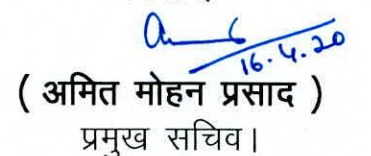 16.4.20
( अमित मोहन प्रसाद )
प्रमुख सचिव।